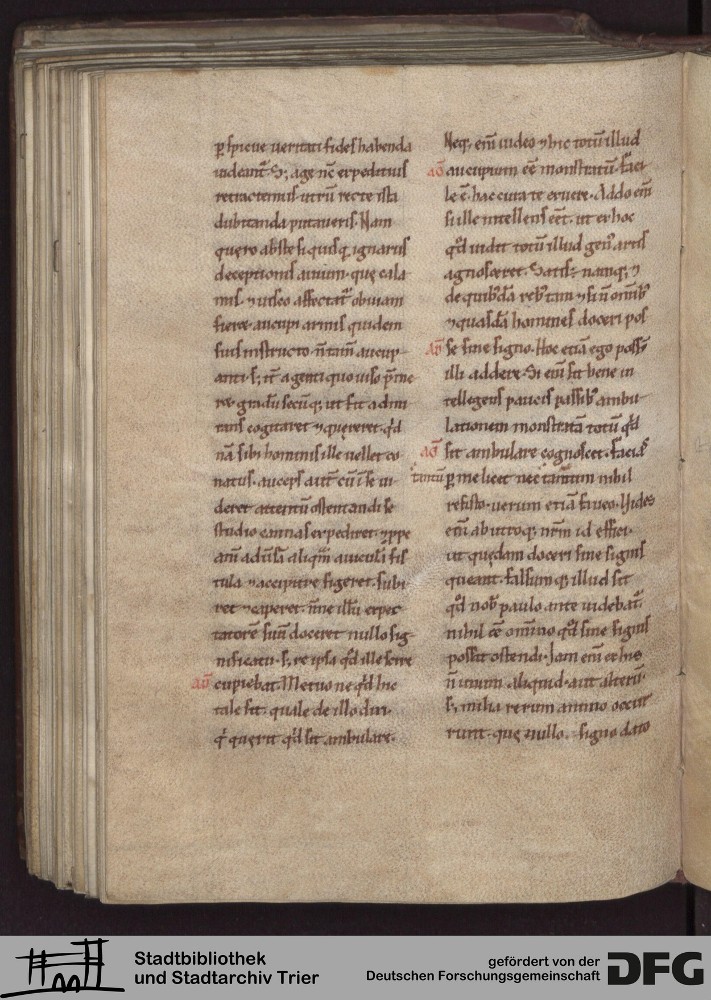 ꝑspicue ueritati fides habenda
uideant᷑. S; age nc̄ expeditius
retractemus utrū recte ista
dubitanda putaueris. Nam
quero abs te si quisq̄ ignarus
deceptionis auium. que cala
mis ⁊ uisco affectat᷑ obuiam
fieret aucupi armis quidem
suis instructo. n̄ tam̄ aucup
anti. s; it̄ agenti quo uiso p̄me
ret gradū secūq; ut fit admi
rans cogitaret ⁊ quereret. qd̄
nā sibi hominis ille uellet or
natus. auceps aut̄ cū ī se ui
deret attentū ostentandi se
studio cannas expediret. ⁊ ꝓpe
am̄ aduersā aliqm̄ auiculā fis
tula ⁊ accipitre figeret. subi
ret ⁊ caperet. n̄ne illū expec
tatorē suū doceret nullo sig
nificatu. s; re ipsa qd̄ ille scire
AD̄ cupiebat. Metuo ne qd̄ hic
tale sit. quale de illo dixi.
q̄ querit qd̄ sit ambulare.
Neq; eni̅ uideo ⁊ hic totū illud
AG̅ aucupium eē monstratū. Faci
le ē hac cura te exuere. Addo eni̅
si ille intellens eēt. ut ex hoc
qd̄ uidit totū illud gen᷒ artis
agnosceret. Satis ē namq; ⁊
de quibꝰdā rebꝰ tam̄ ⁊ si n̄ om̄ibꝰ
⁊ quosdā homines doceri pos
AD̄ se sine signo. Hoc etiā ego possū
illi addere. Si eni̅ sit bene in
tellegens paucis passibꝰ ambu
lationem monstratā totū qd̄
AG̅ sit ambulare cognoscet. Facias
tantū ꝑ me licet nec tantum nihil
resisto. uerum etiā faueo. Vides
eni̅ ab utroq; nr̄m id effici.
ut quedam doceri sine signis
queant. falsum q; illud sit
qd̄ nob̄ paulo ante uidebat᷑.
nihil eē om̄ino qd̄ sine signis
possit ostendi. Iam eni̅ ex his
n̄ unum aliquid. aut alterū.
s; milia rerum animo occur
runt. que nullo signo dato
Stadtbibliothek
und Stadtarchiv Trier
gefördert von der
Deutschen Forschungsgemeinschaft
DFG